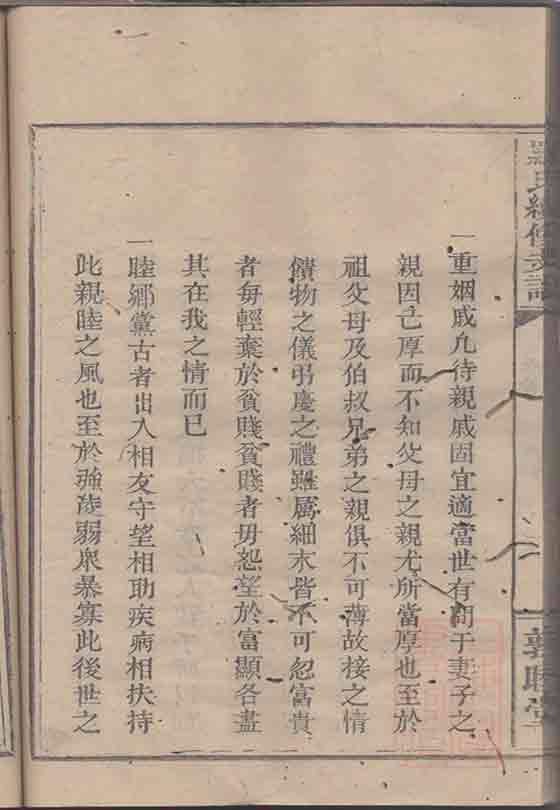 氏續修支譜
敦睦堂
一重姻戚凢待親戚固宜適當世有問于妻子之
親因已厚而不知父母之親尤所當厚也至於
祖父母及伯叔兄弟之親俱不可薄故接之情
饋物之儀弔慶之禮雖属細末皆不可忽富貴
者每輕棄於貧賤貧賤者毋恕望於富顯各盡
其在我之情而已
一睦鄉黨古者出入相友守望相助疾病相扶持
此親睦之風也至於強陵弱衆暴寡此後世之